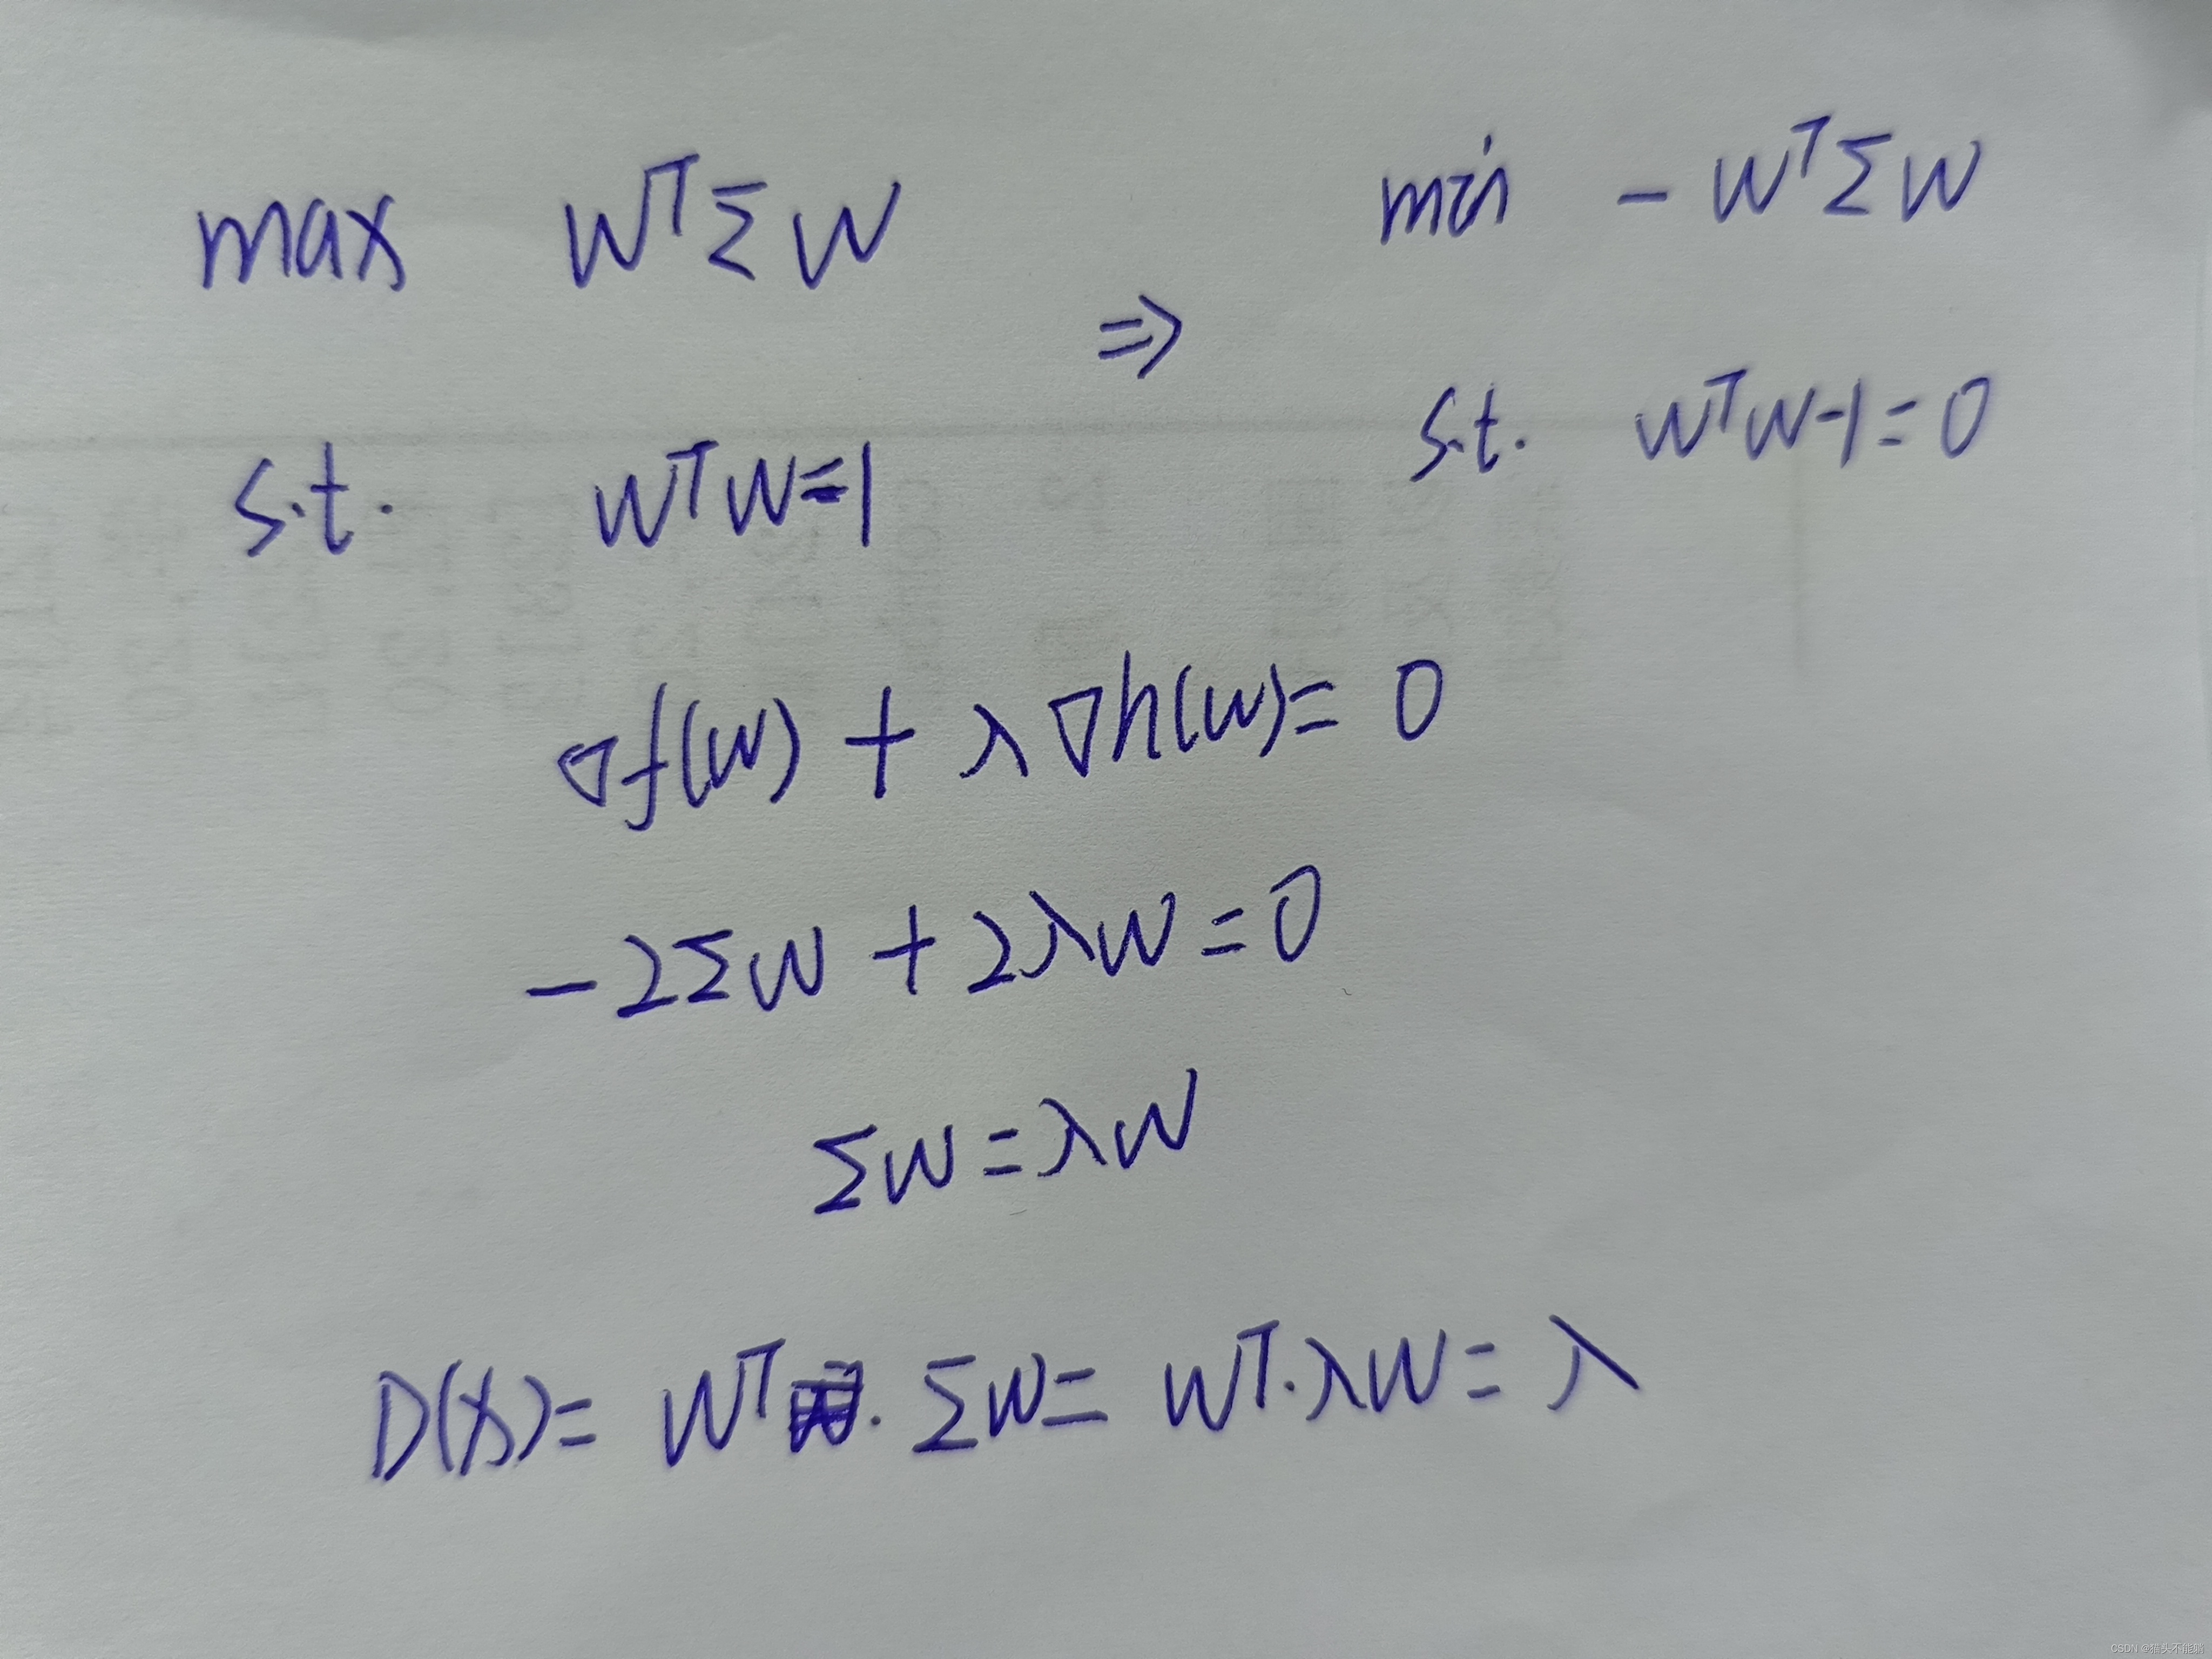 max W^T Σ W ⇒ min - W^T Σ W
s.t. W^T W = 1 s.t. W^T W - 1 = 0
∇f(W) + λ∇h(W) = 0
-2ΣW + 2λW = 0
ΣW = λW
D(X) = W^T · ΣW = W^T · λW = λ
CSDN @猫头不能躺